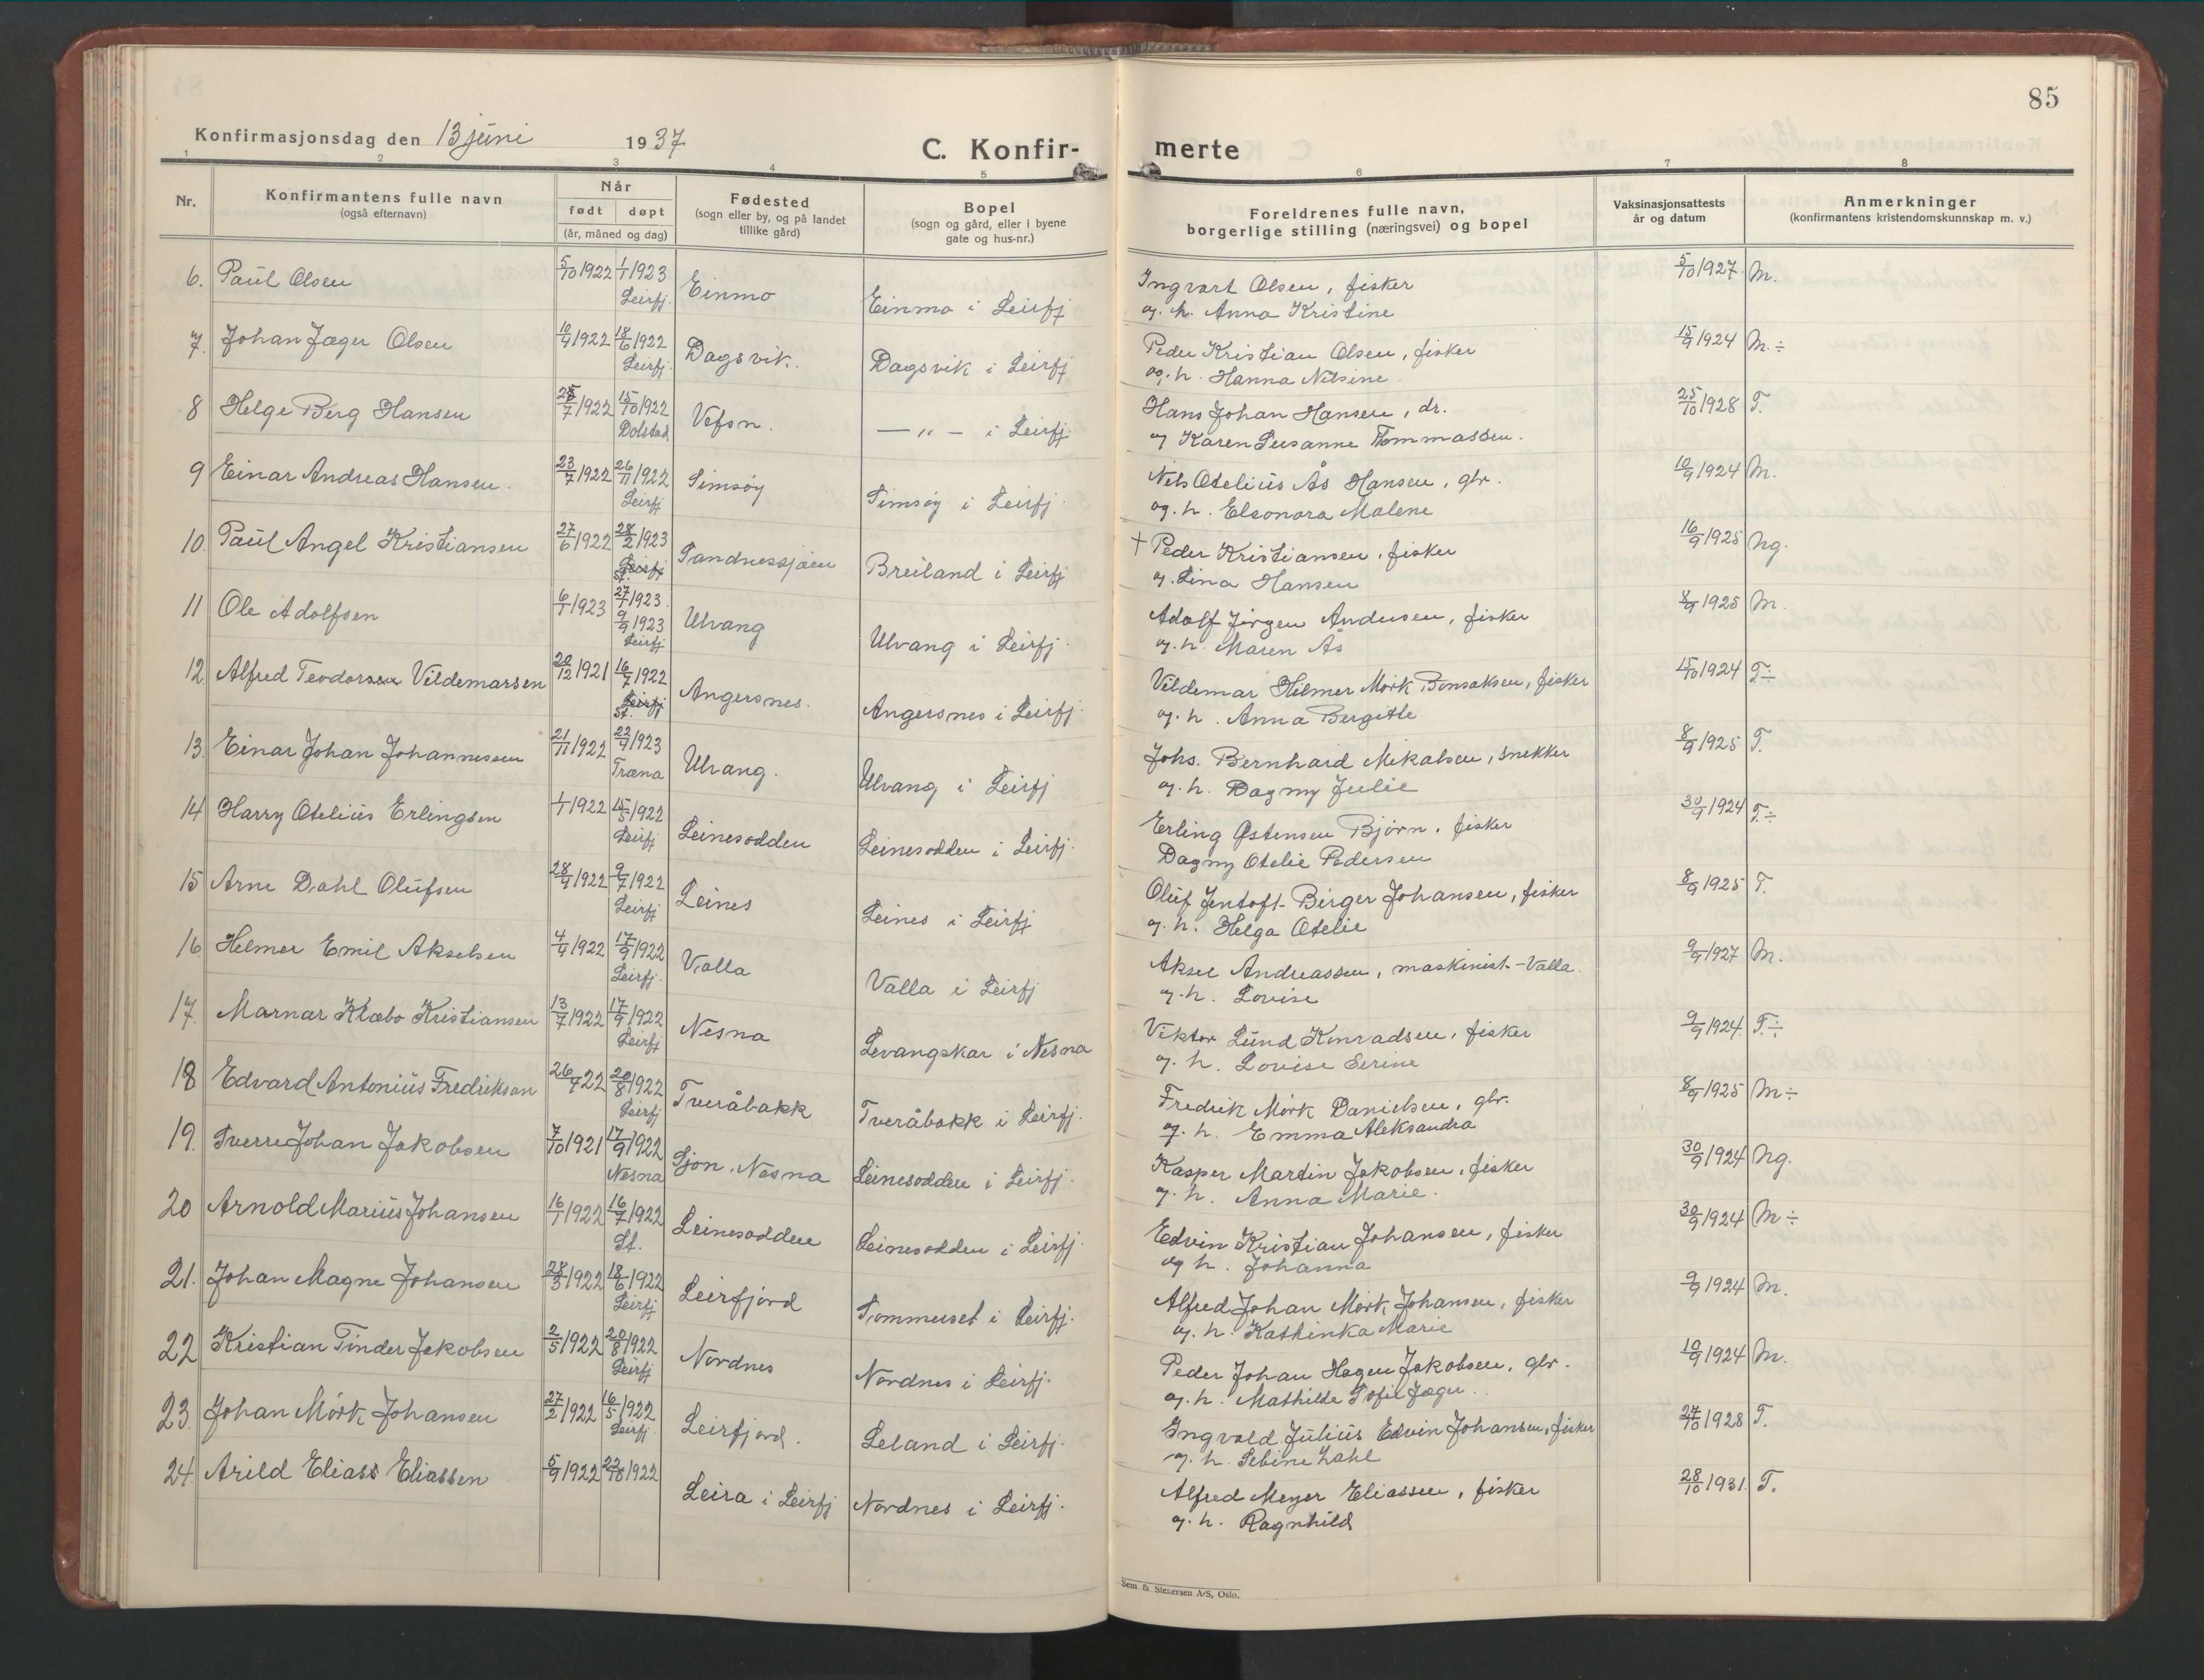 85
Konfirmasjonsdag den 13 juni 1937
C. Konfir- merte
1 2 3 4 5 6 7 8
Nr. Konfirmantens fulle navn (også efternavn) Når født døpt (år, måned og dag) Fødested (sogn eller by, og på landet tillike gård) Bopel (sogn og gård, eller i byene gate og hus-nr.) Foreldrenes fulle navn, borgerlige stilling (næringsvei) og bopel Vaksinasjonsattests år og datum Anmerkninger (konfirmantens kristendomskunnskap m. v.)
6. Paul Olsen 5/10 1922 1/1 1923 Leirfj. Einmo Einmo i Leirfj Ingvart Olsen, fisker 5/10 1927. M.
og. h. Anna Kristine
7. Johan Jæger Olsen 10/4 1922 18/6 1922 Leirfj. Dagsvik. Dagsvik i Leirfj Peder Kristian Olsen, fisker 15/9 1924 M. ÷
og. h. Hanna Nilsine.
8 Helge Berg Hansen /7 1922 15/10 1922 Dolstad Vefsn. — „ — i Leirfj. Hans Johan Hansen, dr. 25/10 1928 T.
og Karen Susanne Tommassen.
9 Einar Andreas Hansen. 23/7 1922 26/11 1922 Leirfj Simsøy Simsøy i Leirfj. Nils Otelius Ås Hansen, gbr. 10/9 1924 M.
og. h. Elsonora Malene
10. Paul Angel Kristiansen 27/6 1922 28/2 1923 Leirfj St. Sandnessjøen Breiland i Leirfj † Peder Kristiansen, fisker 16/9 1925 Ng.
og. Lina Hansen
11 Ole Adolfsen 6/1 1923 27/1 1923. 9/9 1923 Leirfj Ulvang Ulvang i Leirfj. Adolf Jørgen Andersen, fisker 8/9 1925 M.
og. h. Maren Ås
12. Alfred Teodor Vildemarsen 20/12 1921 16/7 1922 Leirfj St. Angersnes. Angersnes i Leirfj. Vildemar Hilmer Mørk Bensaksen, fisker 15/10 1924 T. ÷
og. h. Anna Bergitte
13. Einar Johan Johannessen 21/11 1922 22/4 1923 Træna Ulvang. Ulvang i Leirfj Johs. Bernhard Mikalsen, snekker 8/9 1925 T.
og. h. Dagny Julie
14 Harry Otelius Erlingsen 1/1 1922 15/5 1922 Leirfj Leinesodden Leinesodden i Leirfj. Erling Østensen Bjørn, fisker 30/9 1924 T. ÷
Dagny Otelie Pedersen
15 Arne Dahl Olufsen 28/4 1922 9/7 1922 Leirfj Leines Leines i Leirfj Oluf Jentoft Birger Johansen, fisker 8/9 1925 T.
og. h. Helga Otelie
16 Helmer Emil Akselsen 4/4 1922 17/9 1922 Leirfj. Valla Valla i Leirfj Aksel Andreassen, maskinist - Valla. 9/9 1927 M.
og. h. Lovise
17. Marnar Klæbo Kristiansen 13/7 1922 17/9 1922 Leirfj Nesna Levangskar i Nesna Viktor Lund Konradsen, fisker 9/9 1924. T. ÷
og. h. Lovise Serine
18 Edvard Antonius Fredriksen 26/4 22 20/8 1922 Leirfj Tveråbakk Tveråbakk i Leirfj. Fredrik Mørk Danielsen, gbr. 8/9 1925 M ÷
og. h. Emma Aleksandra
19. Sverre Johan Jakobsen 7/10 1921 17/9 1922 Nesna Sjon, Nesna Leinesodden i Leirfj. Kasper Martin Jakobsen, fisker 30/9 1924 Ng.
og. h. Anna Marie.
20 Arnold Marius Johansen 16/1 1922 16/7 1922 St. Leinesodden Leinesodden i Leirfj. Edvin Kristian Johansen, fisker 30/9 1924 M ÷
og h. Johanna
21. Johan Magne Johansen 28/3 1922 18/6 1922 Leirfj Leirfjord Sommerset i Leirfj. Alfred Johan Mørk Johansen, fisker 9/9 1924 M.
og. h. Kathinka Marie
22 Kristian Tinder Jakobsen 2/5 1922 20/8 1922 Leirfj Nordnes Nordnes i Leirfj. Peder Johan Hagen Jakobsen, gbr. 10/9 1924 M.
og. h. Mathilde Sofie Jæger.
23. Johan Mørk Johansen 27/2 1922 16/5 1922 Leirfj. Leirfjord. Leland i Leirfj. Ingvald Julius Edvin Johansen, fisker 27/10 1928 T.
og. h. Sebine Zahl
24. Arild Eliass Eliassen 5/9 1922 22/10 1922 Leira i Leirfj Nordnes i Leirfj. Alfred Meyer Eliassen, fisker 28/10 1931. T.
og. h. Ragnhild
Sem & Stenersen A/S, Oslo.